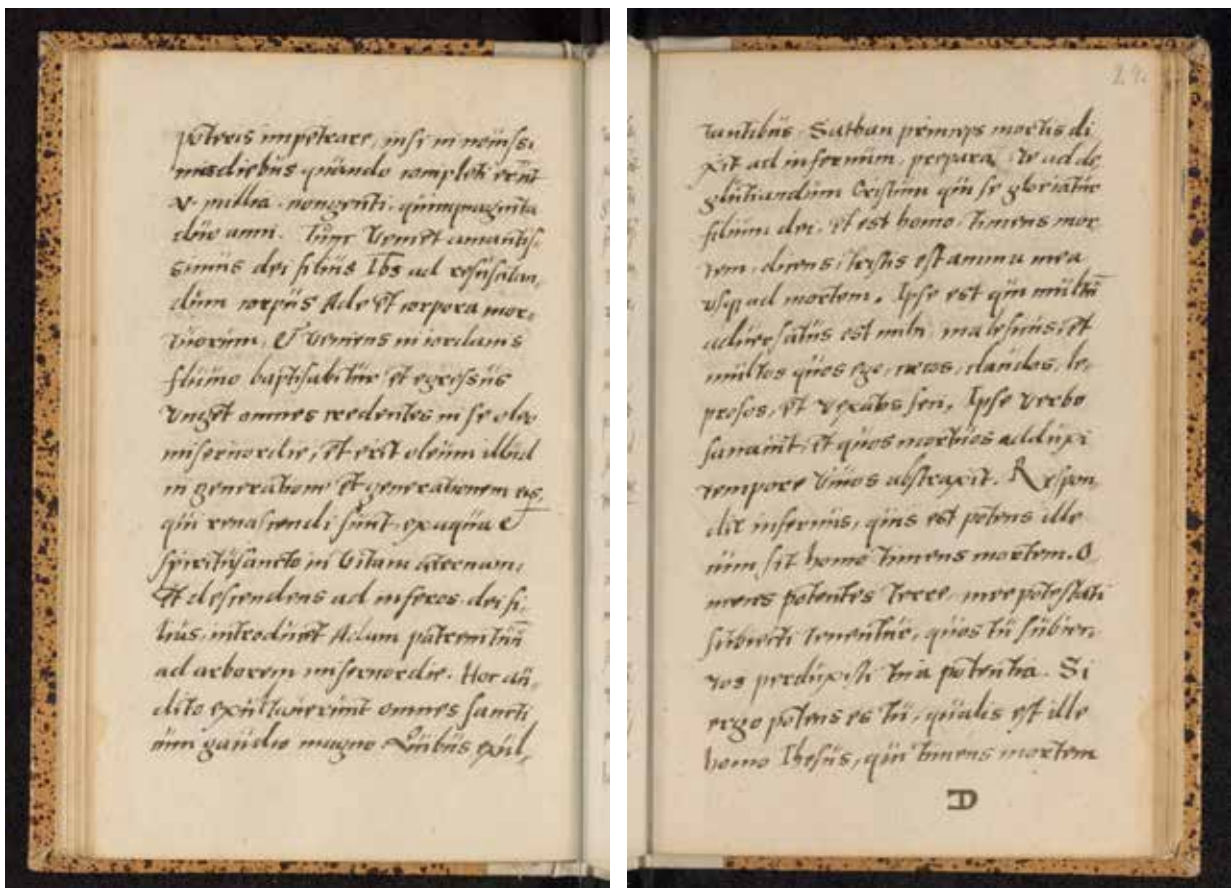 poteris impetrare, nisi in nouissi
mis diebus quando completi erūt
v. millia. nongenti. quinquaginta
duo anni. Tunc Veniet amantis,
simus dei filius Ihs ad resuscitan,
dum corpus Ade et corpora mor,
tuorum, & veniens in iordanis
flumo baptisabitur et egressus
Vnget omnes credentes in se oleo
misericordie, et erit oleum illud
in generatione et generationem eis,
qui renascendi sunt. ex aqua &
spiritu sancto in Vitam eternam.
Et descendens ad inferos. dei fi,
lius. introducet Adam patrem tuū
ad arborem misericordie. Hoc au,
dito exultauerunt omnes sancti
cum gaudio magno Quibus exul,
24.
tantibus. Sathan princeps mortis di
xit ad infernum. prepara te ad de,
glutiandum Cristum qui se gloriatur
filium dei. et est homo. timens mor
tem. dicens, tristis est anima mea
vsq ad mortem. Ipse est qui multū
aduersatus est mihi. malefinus, et
multos quos ego, cecos, claudos, le,
prosos, et vexatos feci, Ipse verbo
sanauit, et quos mortuos adduxi
tempore viuos abstraxit. Respon,
dit infernus, quis est potens ille
cum sit homo timens mortem. O
mnes potentes terre. mee potestati
subiecti tenentur, quos tu subiec,
tos perduxisti tua potentia. Si
ergo potens es tu, qualis est ille
homo Ihesus, qui timens mortem
D